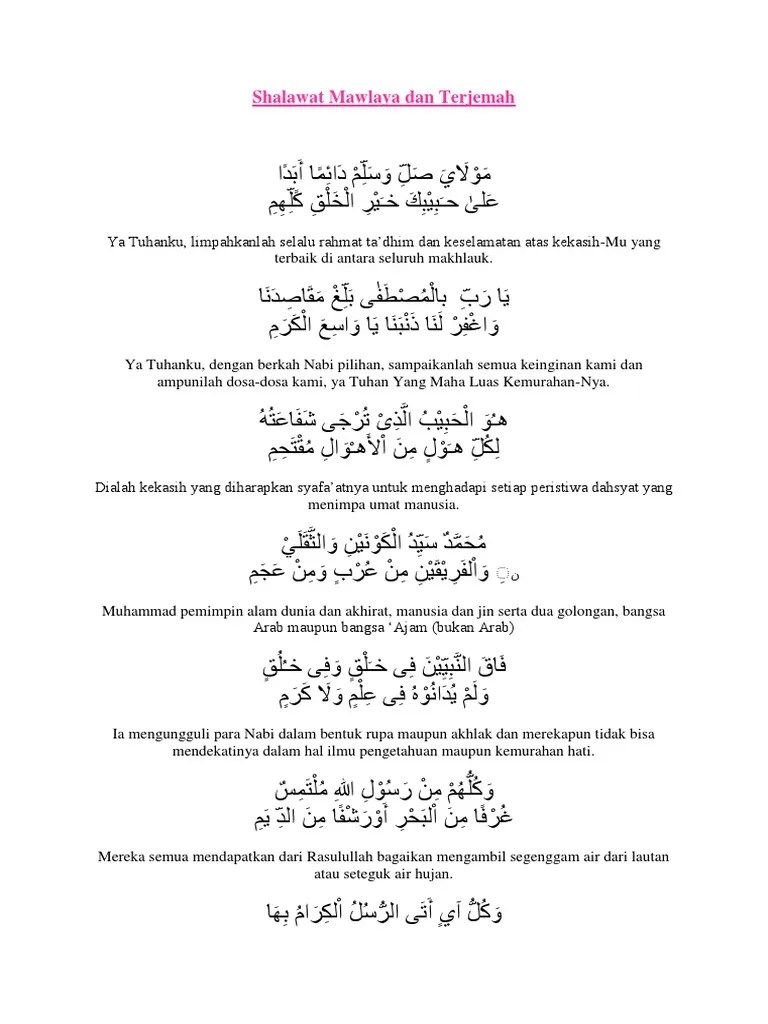 Shalawat Mawlaya dan Terjemah
مَوْلَايَ صَلِّ وَسَلِّمْ دَائِمًا أَبَدًا
عَلىٰ حَبِيْبِكَ خَيْرِ الْخَلْقِ كُلِّهِمِ
Ya Tuhanku, limpahkanlah selalu rahmat ta’dhim dan keselamatan atas kekasih-Mu yang
terbaik di antara seluruh makhlauk.
يَا رَبِّ بِالْمُصْطَفٰى بَلِّغْ مَقَاصِدَنَا
وَاغْفِرْ لَنَا ذَنْبَنَا يَا وَاسِعَ الْكَرَمِ
Ya Tuhanku, dengan berkah Nabi pilihan, sampaikanlah semua keinginan kami dan
ampunilah dosa-dosa kami, ya Tuhan Yang Maha Luas Kemurahan-Nya.
هُوَ الْحَبِيْبُ الَّذِىْ تُرْجَى شَفَاعَتُهُ
لِكُلِّ هَوْلٍ مِنَ الْأَهْوَالِ مُقْتَحِمِ
Dialah kekasih yang diharapkan syafa’atnya untuk menghadapi setiap peristiwa dahsyat yang
menimpa umat manusia.
مُحَمَّدٌ سَيِّدُ الْكَوْنَيْنِ وَالثَّقَلَيْ
نِ وَالْفَرِيْقَيْنِ مِنْ عُرْبٍ وَمِنْ عَجَمِ
Muhammad pemimpin alam dunia dan akhirat, manusia dan jin serta dua golongan, bangsa
Arab maupun bangsa ‘Ajam (bukan Arab)
فَاقَ النَّبِيِّيْنَ فِى خَلْقٍ وَفِى خُلُقٍ
وَلَمْ يُدَانُوْهُ فِى عِلْمٍ وَلَا كَرَمٍ
Ia mengungguli para Nabi dalam bentuk rupa maupun akhlak dan merekapun tidak bisa
mendekatinya dalam hal ilmu pengetahuan maupun kemurahan hati.
وَكُلُّهُمْ مِنْ رَسُوْلِ اللهِ مُلْتَمِسٌ
غُرْفًا مِنَ الْبَحْرِ أَوْرَشْفًا مِنَ الدِّ يَمِ
Mereka semua mendapatkan dari Rasulullah bagaikan mengambil segenggam air dari lautan
atau seteguk air hujan.
وَكُلُّ آيٍ أَتَى الرُّسُلُ الْكِرَامُ بِهَا